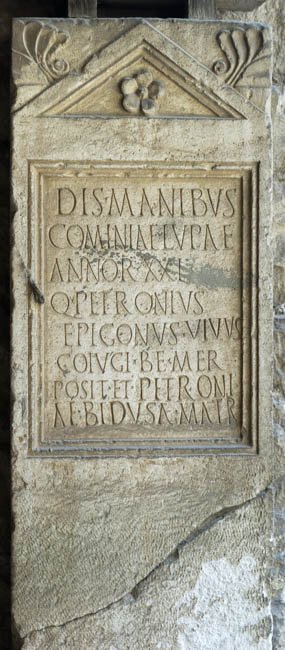 DIS·MANIBVS
COMINIAE LVPAE
ANNOR·XXI
Q·PETRONIVS
EPIGONVS·VIVVS
COIVGI·BE·MER
POSIT·ET·PETRONI
AE·BIDVSA·MATR